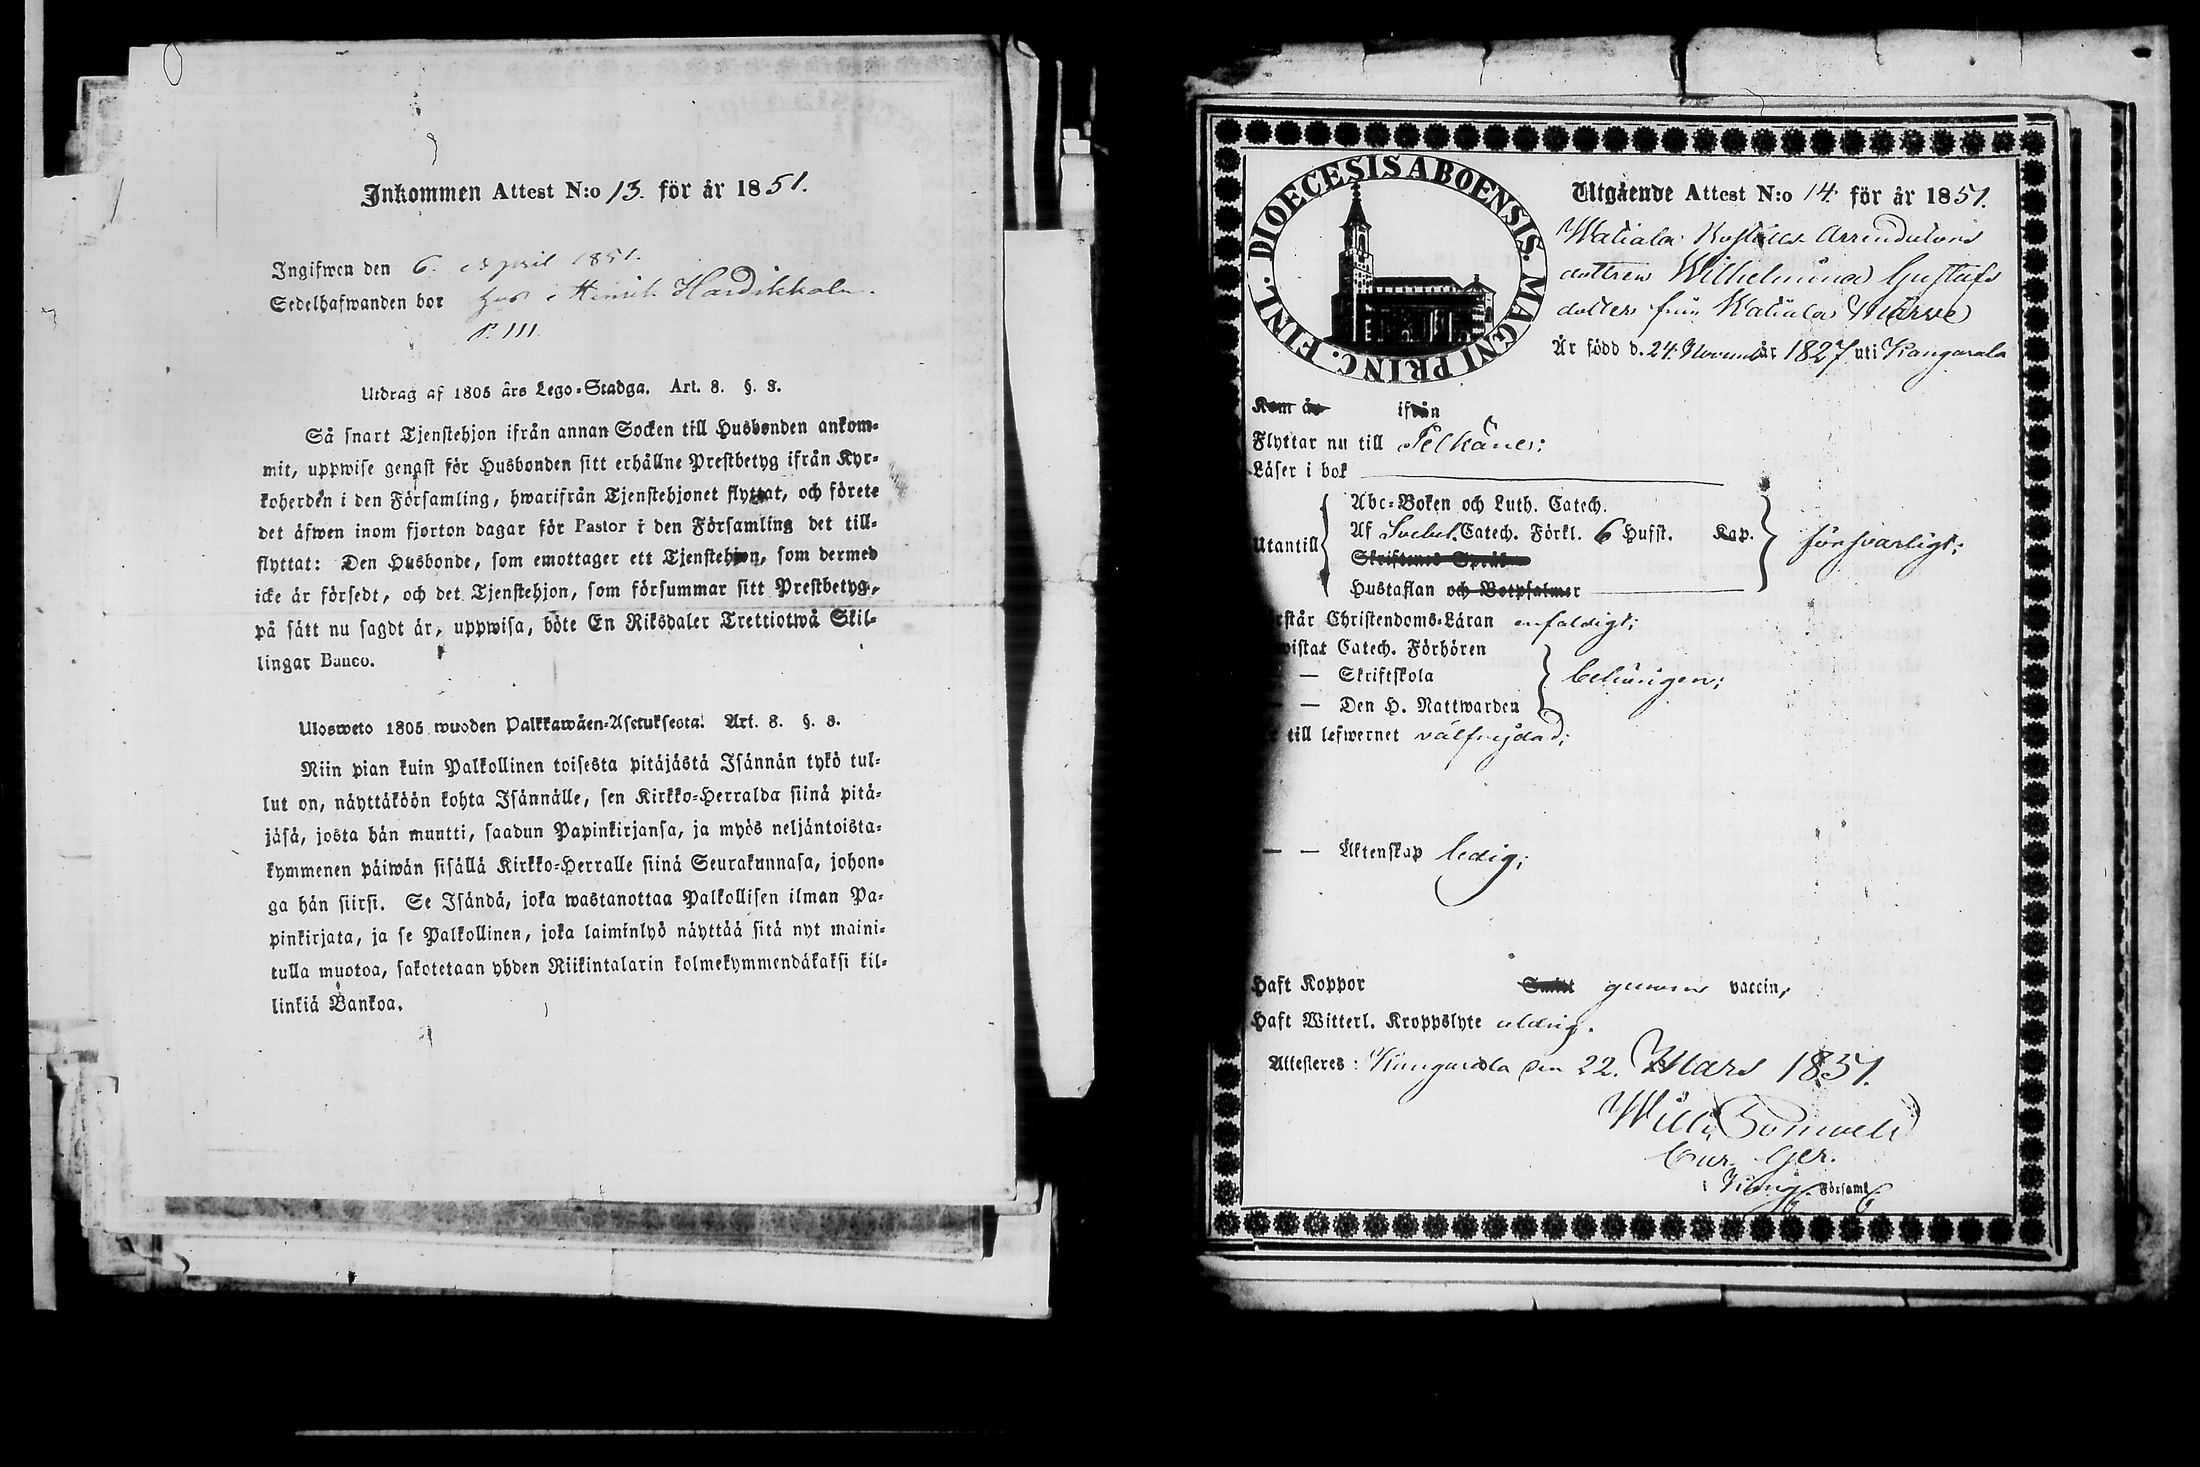 Inkommen Attest N:o 13. för år 1851.
Ingifwen den 6. April 1851.
Sedelhafwanden bor hos Henrik
P. 111.
Utdrag af 1805 års Lego-Stadga. Art. 8. §. 8.
Så snart Tjenstehjon ifrån annan Socken till Husbonden ankom-
mit, uppwise genast för Husbonden sitt erhållne Prestbetyg ifrån Kyr-
koherden i den Församling, hwarifrån Tjenstehjonet flyttat, och förete
det äfwen inom fjorton dagar för Pastor i den Församling det till-
flyttat: Den Husbonde, som emottager ett Tjenstehjon, som dermed
icke är försedt, och det Tjenstehjon, som försummar sitt Prestbetyg,
på sätt nu sagdt är, uppwisa, böte En Riksdaler Trettiotwå Skil-
lingar Banco.
Ulosweto 1805 wuoden Palkkawäen-Asetuksesta. Art. 8. §. 8.
Niin pian kuin Palkollinen toisesta pitäjästä Isännän tykö tul-
lut on, näyttäköön kohta Isännälle, sen Kirkko-Herralda siinä pitä-
jäsä, josta hän muutti, saadun Papinkirjansa, ja myös neljäntoista-
kymmenen päiwän sisällä Kirkko-Herralle siinä Seurakunnasa, johon-
ga hän siirsi. Se Isändä, joka wastanottaa Palkollisen ilman Pa-
pinkirjata, ja se Palkollinen, joka laiminlyö näyttää sitä nyt maini-
tulla muotoa, sakotetaan yhden Riikintalarin kolmekymmendäkaksi kil-
linkiä Bankoa.
DIOECESIS ABOENSIS. MAGNI PRINC. FINL.
Utgående Attest N:o 14. för år 1851.
Watiala Arrendators
dottren Wilhelmina Gustafs
dotter från Watiala
Är född d. 24. Novemb. år 1827 uti Kangasala
Kom år ifrån
Flyttar nu till Pelkäne;
Läser i bok
Abc-Boken och Luth. Catech.
Utantill Af Svebel. Catech. Förkl. 6 Hufst. Kap. försvarligt;
Skriftenes Språk
Hustaflan och Botpsalmer
rstår Christendoms-Läran enfaldigt;
wistat Catech. Förhören
— Skriftskola behörigen;
— — Den H. Nattwarden
till lefwernet välfrejdad;
— — Äktenskap ledig;
Haft Koppor genom vaccin,
Haft Witterl. Kroppslyte aldrig.
Attesteres: Kangasala den 22. Mars 1851.
Cur. Ger.
i Kang. Församl